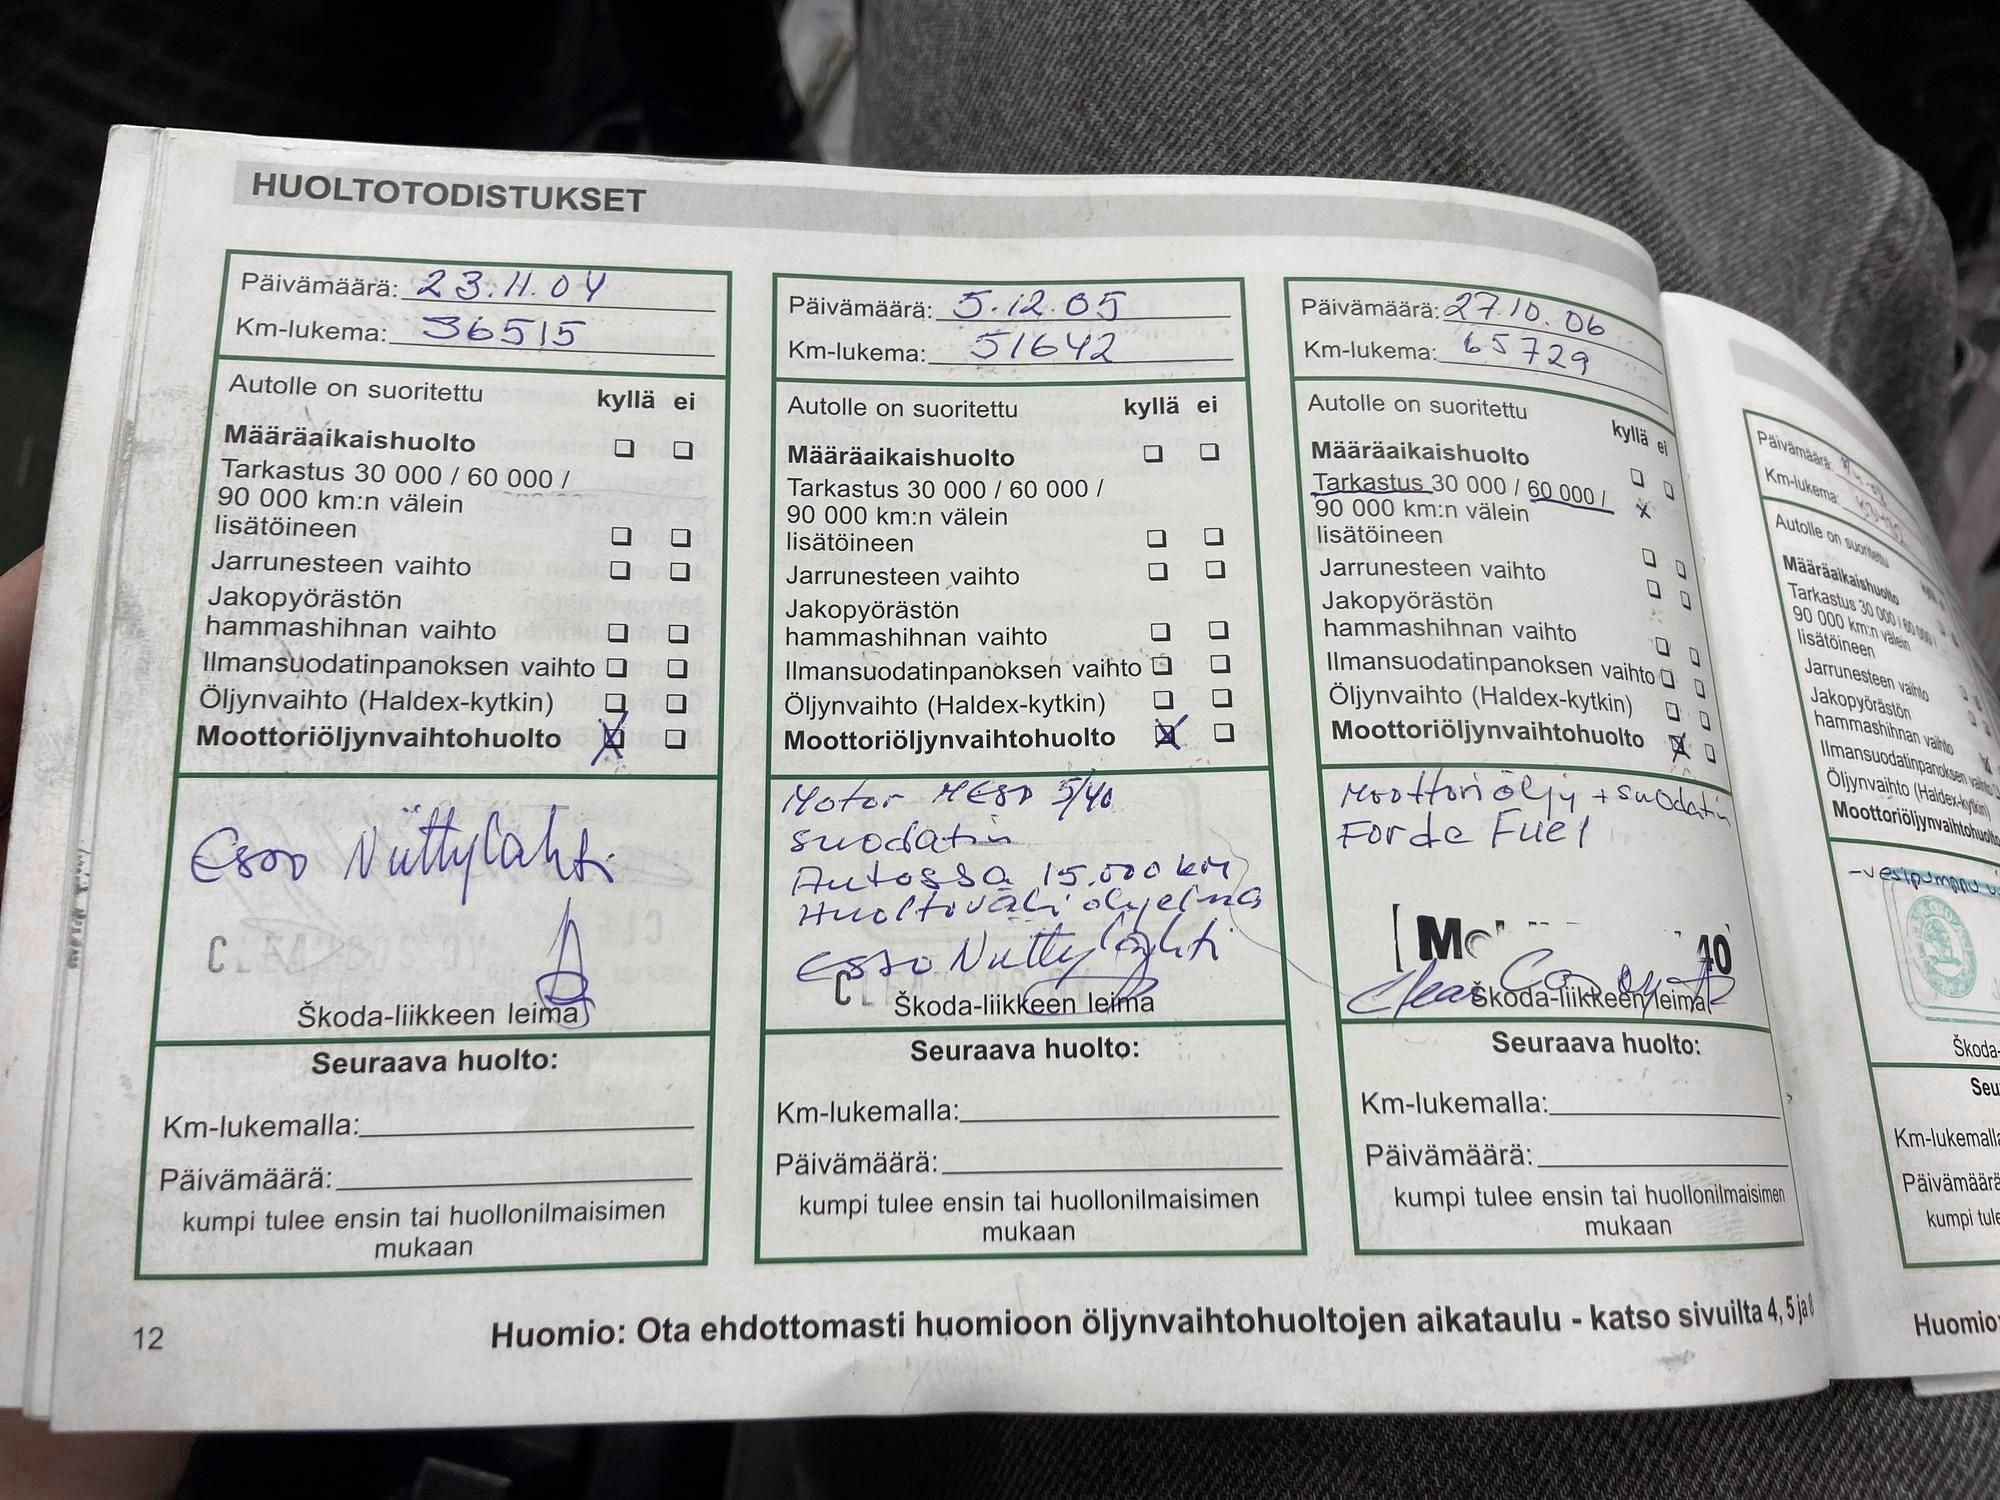 HUOLTOTODISTUKSET
Päivämäärä: 23.11.04
Km-lukema: 36515
Autolle on suoritettu kyllä ei
Määräaikaishuolto
Tarkastus 30 000 / 60 000 /
90 000 km:n välein
lisätöineen
Jarrunesteen vaihto
Jakopyörästön
hammashihnan vaihto
Ilmansuodatinpanoksen vaihto
Öljynvaihto (Haldex-kytkin)
Moottoriöljynvaihtohuolto
Esso Niittylahti
Škoda-liikkeen leima
Seuraava huolto:
Km-lukemalla:
Päivämäärä:
kumpi tulee ensin tai huollonilmaisimen
mukaan
Päivämäärä: 5.12.05
Km-lukema: 51642
Autolle on suoritettu kyllä ei
Määräaikaishuolto
Tarkastus 30 000 / 60 000 /
90 000 km:n välein
lisätöineen
Jarrunesteen vaihto
Jakopyörästön
hammashihnan vaihto
Ilmansuodatinpanoksen vaihto
Öljynvaihto (Haldex-kytkin)
Moottoriöljynvaihtohuolto
Motor 5/40
suodatin
Autossa 15.000 km
Huoltoväli ohjelma
Esso Niittylahti
Škoda-liikkeen leima
Seuraava huolto:
Km-lukemalla:
Päivämäärä:
kumpi tulee ensin tai huollonilmaisimen
mukaan
Päivämäärä: 27.10.06
Km-lukema: 65729
Autolle on suoritettu kyllä ei
Määräaikaishuolto
Tarkastus 30 000 / 60 000 /
90 000 km:n välein
lisätöineen
Jarrunesteen vaihto
Jakopyörästön
hammashihnan vaihto
Ilmansuodatinpanoksen vaihto
Öljynvaihto (Haldex-kytkin)
Moottoriöljynvaihtohuolto
Moottoriöljy + suodatin
Forde Fuel
Škoda-liikkeen leima
Seuraava huolto:
Km-lukemalla:
Päivämäärä:
kumpi tulee ensin tai huollonilmaisimen
mukaan
12
Huomio: Ota ehdottomasti huomioon öljynvaihtohuoltojen aikataulu - katso sivuilta 4, 5 ja 8
Päivämäärä:
Km-lukema:
Autolle on suoritettu
Määräaikaishuolto
Tarkastus 30 000 / 60 000 /
90 000 km:n välein
lisätöineen
Jarrunesteen vaihto
Jakopyörästön
hammashihnan vaihto
Ilmansuodatinpanoksen vaihto
Öljynvaihto (Haldex-kytkin)
Moottoriöljynvaihtohuolto
-vesipumppu
Škoda-
Km-lukemalla
Päivämäärä
Huomio: